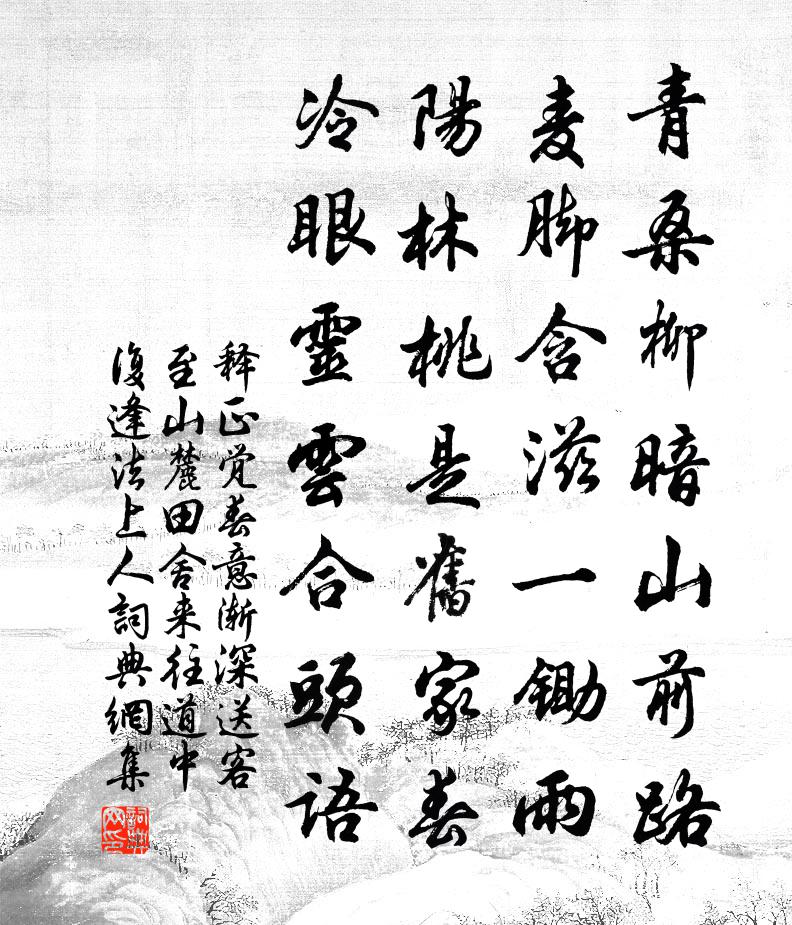 青桑柳暗山前路
麦脚含滋一锄雨
陽林桃是舊家春
冷眼靈雲合頭语
释正觉春意渐深送客
至山麓田舍来往道中
復逢法上人詞典網集
詞典網印